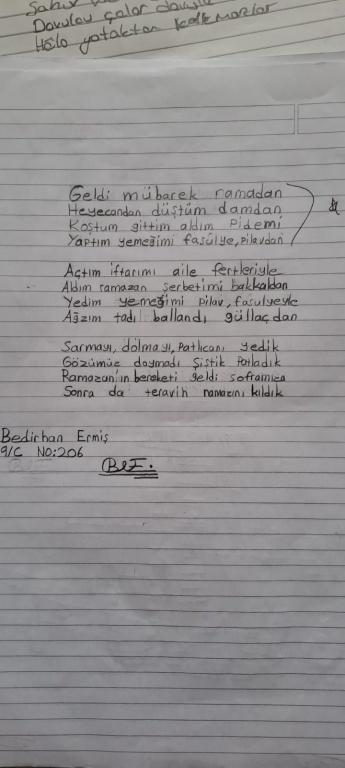 Davulcu çalar davulu
Hâlâ yataktan kalkmazlar
Geldi mübarek ramadan
Heyecandan düştüm damdan
Koştum gittim aldım Pidemi
Yaptım yemeğimi fasülye, pilavdan
Açtım iftarımı aile fertleriyle
Aldım ramazan şerbetimi bakkaldan
Yedim yemeğimi pilav, fasulyeyle
Ağzım tadı ballandı güllaçdan
Sarmayı, dolmayı, Patlıcanı yedik
Gözümüz doymadı şiştik Patladık
Ramazan'ın bereketi geldi soframıza
Sonra da teravih namazını kıldık
Bedirhan Ermiş
9/C NO:206